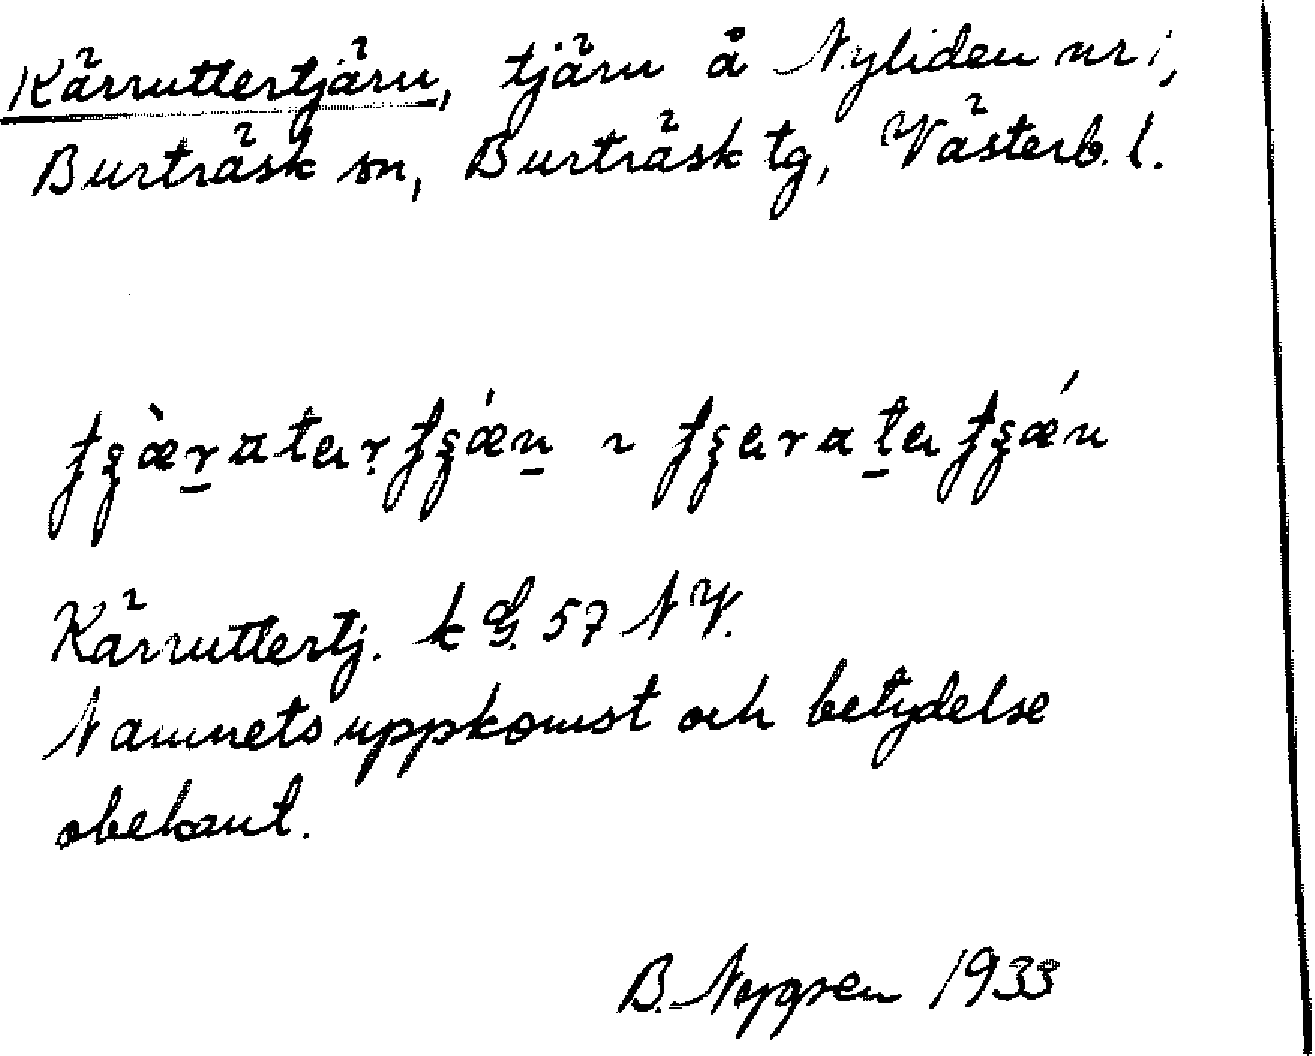 Kärruttertjärn, tjärn å Nyliden nr 1,
Burträsk sn, Burträsk tg, Västerb. l.
Kärruttertj. k G. 57 NV.
Namnets uppkomst och betydelse
obekant.
B. 1933